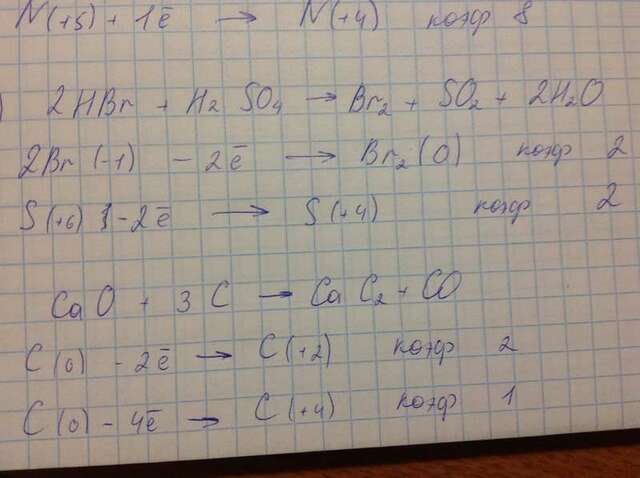 N(+5) + 1ē → N(+4) коэф 8
) 2HBr + H₂SO₄ → Br₂ + SO₂ + 2H₂O
2Br(-1) - 2ē → Br₂(0) коэф 2
S(+6) - 2ē → S(+4) коэф 2
CaO + 3C → CaC₂ + CO
C(0) - 2ē → C(+2) коэф 2
C(0) - 4ē → C(+4) коэф 1